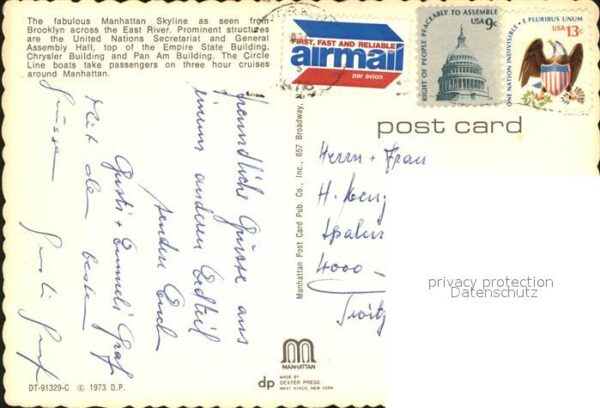 The fabulous Manhattan Skyline as seen from
Brooklyn across the East River. Prominent structures
are the United Nations Secretariat and General
Assembly Hall, top of the Empire State Building,
Chrysler Building and Pan Am Building. The Circle
Line boats take passengers on three hour cruises
around Manhattan.
FIRST, FAST AND RELIABLE
airmail
par avion
RIGHT OF PEOPLE PEACEABLY TO ASSEMBLE
USA 9c
ONE NATION INDIVISIBLE
E PLURIBUS UNUM
USA 13c
post card
Freundliche Grüsse aus
einem anderen Erdteil
senden Euch
Gusti + Emmeli Graf
Mit den besten
Grüssen
Graf
Herrn + Frau
H.
4000
Manhattan Post Card Pub. Co., Inc., 657 Broadway, N
privacy protection
Datenschutz
MANHATTAN
dp
MADE BY
DEXTER PRESS
WEST NYACK, NEW YORK
DT-91329-C © 1973 D.P.